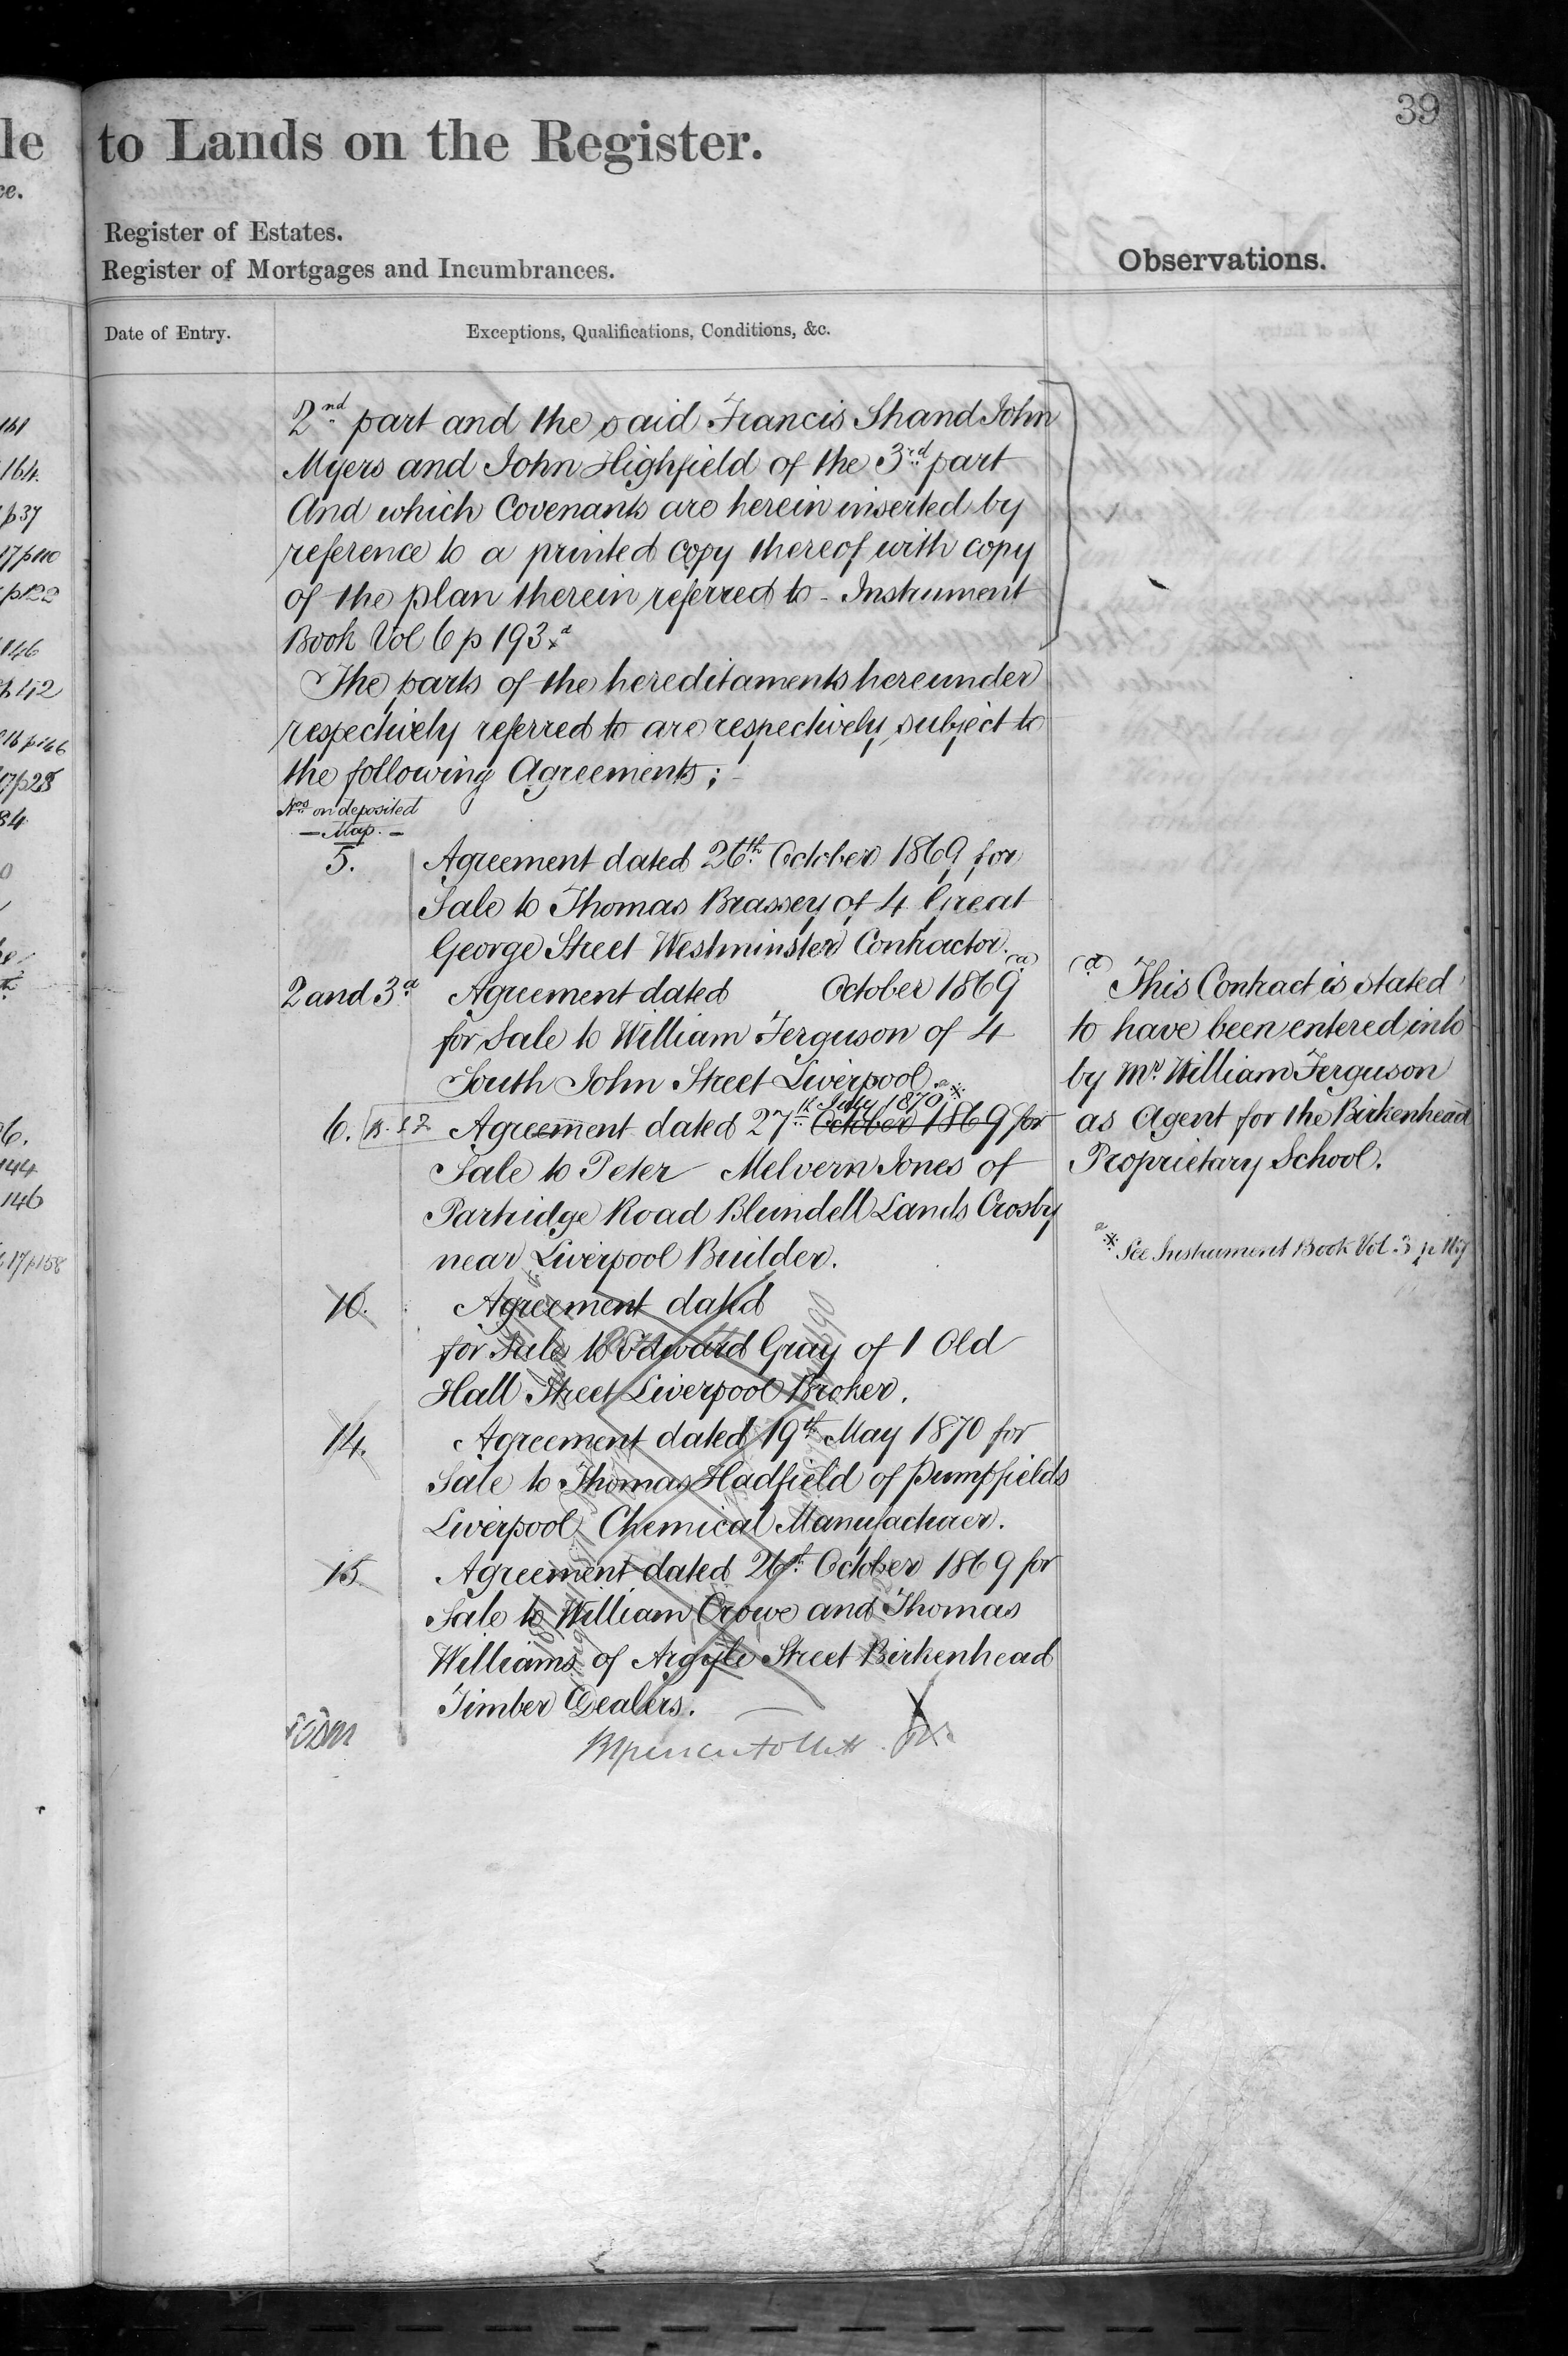 39
to Lands on the Register.
Register of Estates.
Register of Mortgages and Incumbrances.
Observations.
Date of Entry.
Exceptions, Qualifications, Conditions, &c.
2nd part and the said Francis Shand John
Myers and John Highfield of the 3rd part
And which Covenants are herein inserted by
reference to a printed copy thereof with copy
of the plan therein referred to - Instrument
Book Vol 6 p 193
The parts of the hereditaments hereunder
respectively referred to are respectively subject to
the following Agreements; -
Nos on deposited
- Map. -
5. Agreement dated 26th October 1869 for
Sale to Thomas Brassey of 4 Great
George Street Westminster Contractor.
2 and 3a Agreement dated October 1869 (a)
for Sale to William Ferguson of 4
South John Street Liverpool.
July 1870
6. Agreement dated 27th October 1869 for
Sale to Peter Melvern Jones of
Partridge Road Blundell Lands Crosby
near Liverpool Builder.
10. Agreement dated
for Sale to Edward Gray of 1 Old
Hall Street Liverpool Broker.
14. Agreement dated 19th May 1870 for
Sale to Thomas Hadfield of Pumpfields
Liverpool Chemical Manufacturer.
15 Agreement dated 26th October 1869 for
Sale to William Crowe and Thomas
Williams of Argyle Street Birkenhead
Timber Dealers.
(a) This Contract is stated
to have been entered into
by Mr. William Ferguson
as Agent for the Birkenhead
Proprietary School.
See Instrument Book Vol. 3 p
le
ce.
161
164.
p37
17/p110
p122
146
16 p146
84
6.
144
146
17/158